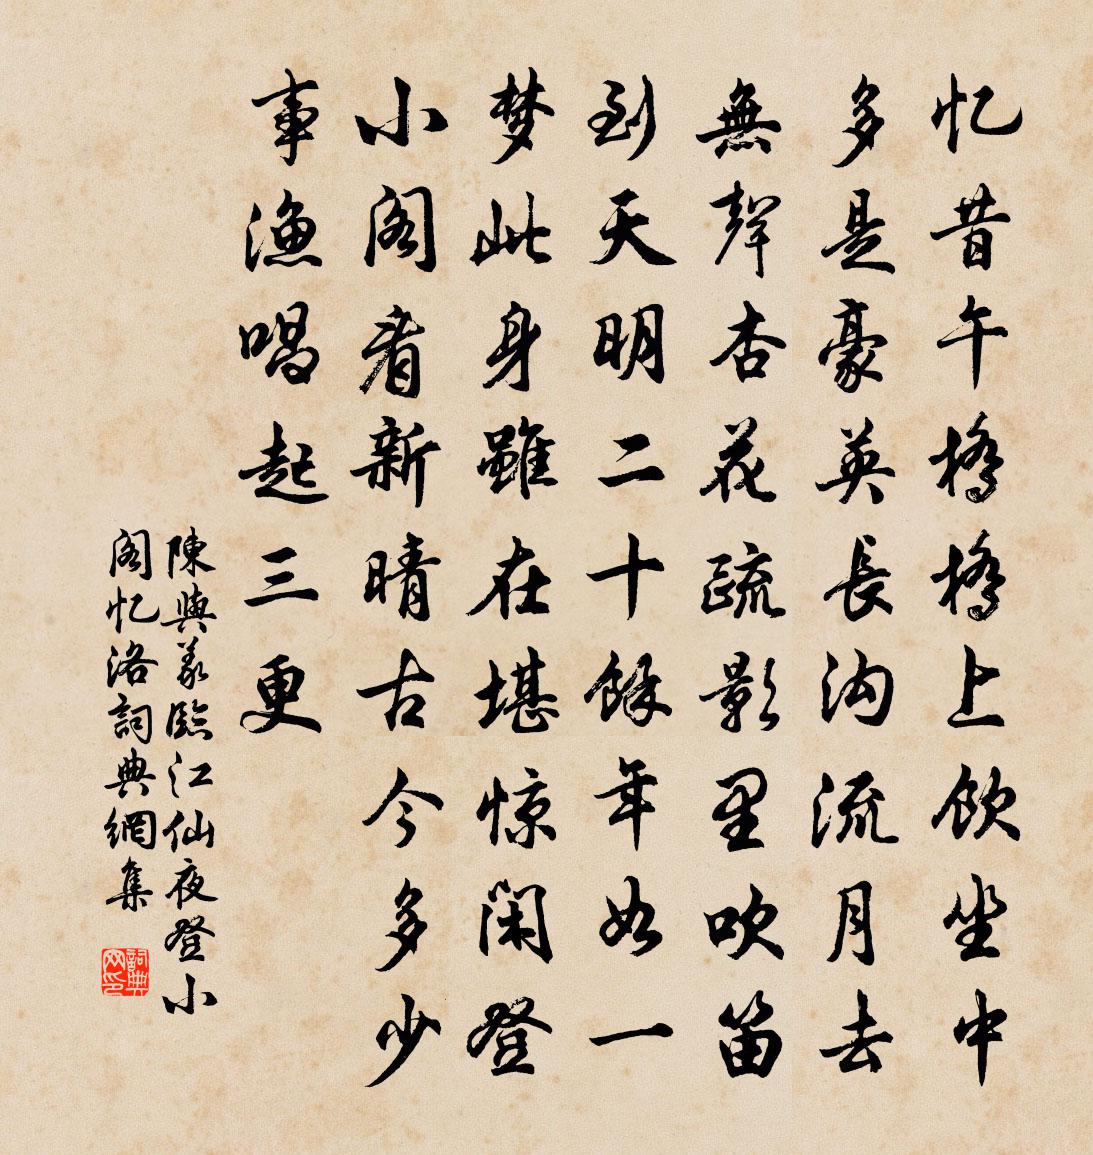 忆昔午橋橋上飲坐中
多是豪英長沟流月去
無聲杏花疏影里吹笛
到天明二十餘年如一
梦此身雖在堪惊閑登
小阁看新晴古今多少
事漁唱起三更
陳與義臨江仙夜登小
阁忆洛詞典網集
詞典
网印